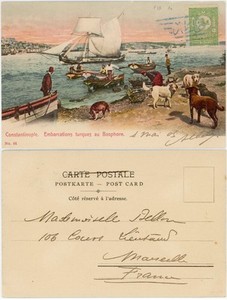 Constantinople. Embarcations turques au Bosphore.
No. 60
CARTE POSTALE
POSTKARTE – POST CARD
Côté réservé à l'adresse.
Mademoiselle Bellon
106 Cours Lieutaud
Marseille
France